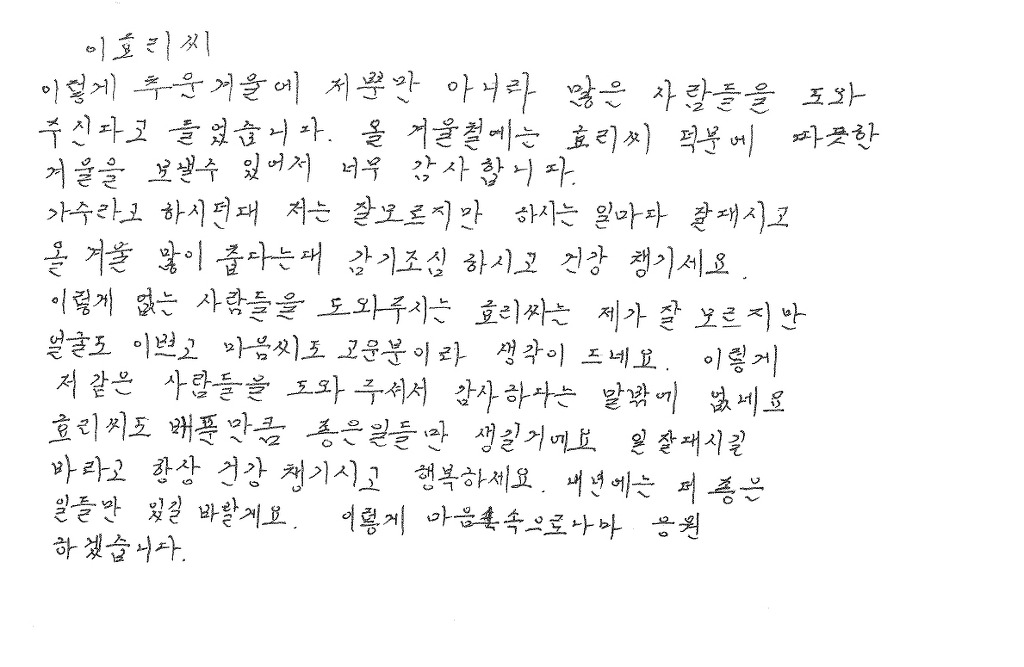 이효리씨
이렇게 추운겨울에 저뿐만 아니라 많은 사람들을 도와
주신다고 들었습니다. 올 겨울철에는 효리씨 덕분에 따뜻한
겨울을 보낼수 있어서 너무 감사합니다.
가수라고 하시던대 저는 잘모르지만 하시는 일마다 잘돼시고
올 겨울 많이 춥다는대 감기조심 하시고 건강 챙기세요.
이렇게 없는 사람들을 도와주시는 효리씨는 제가 잘 모르지만
얼굴도 이쁘고 마음씨도 고운분이라 생각이 드네요. 이렇게
저 같은 사람들을 도와 주셔서 감사하다는 말밖에 없네요
효리씨도 베푼만큼 좋은일들만 생길거에요 일 잘돼시길
바라고 항상 건강 챙기시고 행복하세요. 내년에는 더 좋은
일들만 있길 바랄게요. 이렇게 마음속으로나마 응원
하겠습니다.